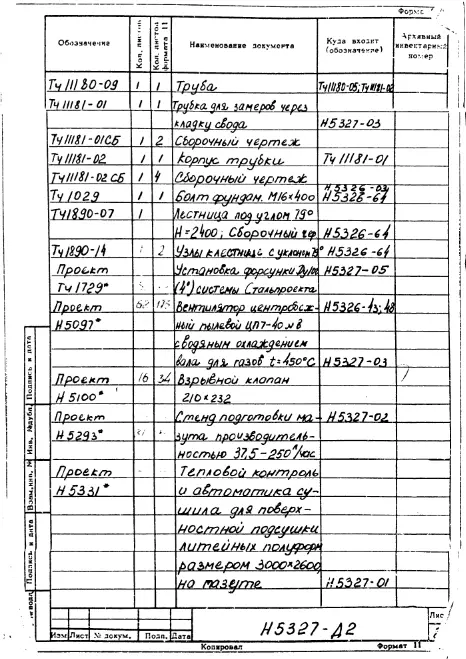 Форма
Обозначение Кол. листов Кол. листов формата 11 Наименование документа Куда входит (обозначение) Архивный инвентарный номер
Тч 11180-09 1 1 Труба Тч11180-05; Тч11181-02
Тч11181-01 1 1 Трубка для замеров через
кладку свода Н5327-03
Тч11181-01СБ 1 2 Сборочный чертеж
Тч11181-02 1 1 Корпус трубки Тч11181-01
Тч11181-02 СБ 1 4 Сборочный чертеж
Тч1029 1 1 Болт фундам. М16×400 Н5326-64
Тч1890-07 1 Лестница под углом 79°
Н=2400; Сборочный Н5326-64
Тч1890-14 2 Узлы к лестнице с уклоном Н5326-64
Проект Установка форсунки Н5327-05
Тч 1729* (4") системы Стальпроекта
Проект Вентилятор центробеж- Н5326-43; 48
Н5097* ный пылевой ЦП7-40 №8
с водяным охлаждением
вала для газов t=450°С Н5327-03
Проект 16 34 Взрывной клапан
Н 5100* 210×232
Проект Стенд подготовки ма- Н5327-02
Н5293* зута производитель-
ностью 37,5-250 л/час
Проект Тепловой контроль
Н5331* и автоматика су-
шила для поверх-
ностной подсушки
литейных полуформ
размером 3000×2600
на мазуте Н5327-01
Подпись и дата
Инв. № дубл.
Взам. инв. №
Подпись и дата
Изм Лист № докум. Подп. Дата
Н5327-Д2
Лис
Копировал Формат 11